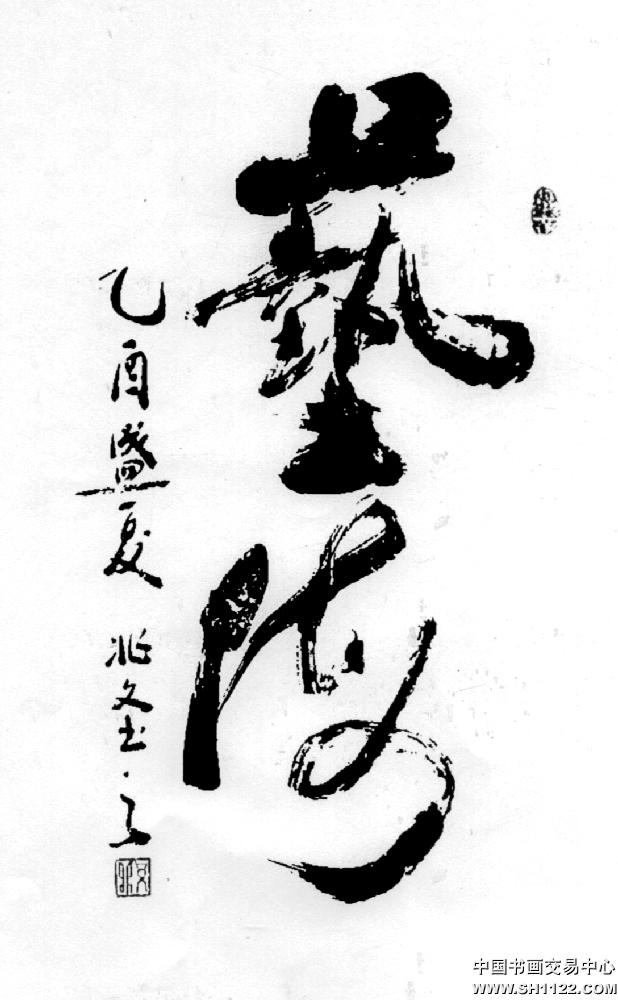 藝海
乙酉盛夏 兆文
中国书画交易中心
www.SH1122.com